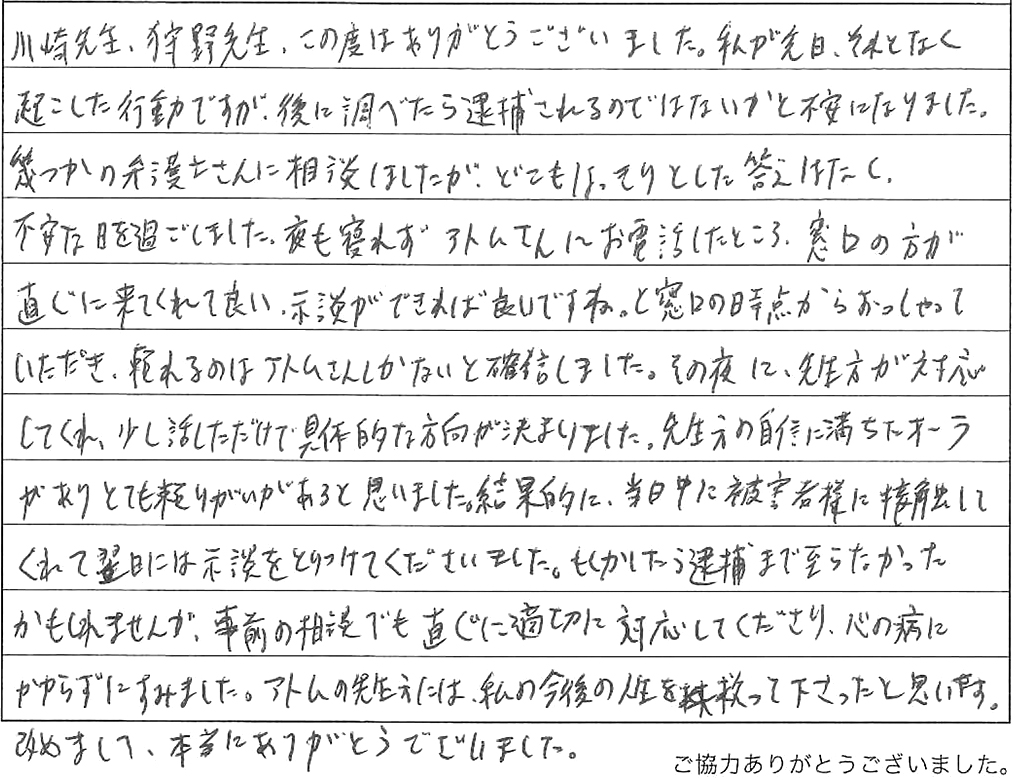 川崎先生、狩野先生、この度はありがとうございました。私が先日、それとなく
起こした行動ですが、後に調べたら逮捕されるのではないかと不安になりました。
幾つかの弁護士さんに相談しましたが、どこもはっきりとした答えはなく、
不安な日を過ごしました。夜も寝れずアトムさんにお電話したところ、窓口の方が
直ぐに来てくれて良い、示談ができれば良いですね。と窓口の時点からおっしゃって
いただき、頼れるのはアトムさんしかないと確信しました。その夜に、先生方が対応
してくれ、少し話しただけで具体的な方向が決まりました。先生方の自信に満ちたオーラ
がありとても頼りがいがあると思いました。結果的に、当日中に被害者様に接触して
くれて翌日には示談をとりつけてくださいました。もしかしたら逮捕まで至らなかった
かもしれませんが、事前の相談でも直ぐに適切に対応してくださり、心の病に
かからずにすみました。アトムの先生方には、私の今後の人生を救って下さったと思います。
改めまして、本当にありがとうございました。
ご協力ありがとうございました。